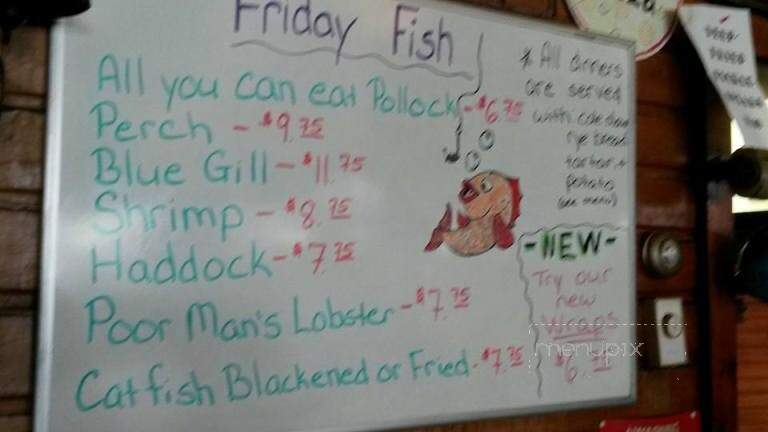 Friday Fish
All you can eat Pollock - $6.75
Perch - $9.75
Blue Gill - $11.75
Shrimp - $8.75
Haddock - $7.75
Poor Man's Lobster - $7.75
Catfish Blackened or Fried - $7.75
* All dinners
are served
with cole slaw
rye bread
tartar +
potato
(see menu)
- NEW -
Try our
new
Wraps
menupix
$6.